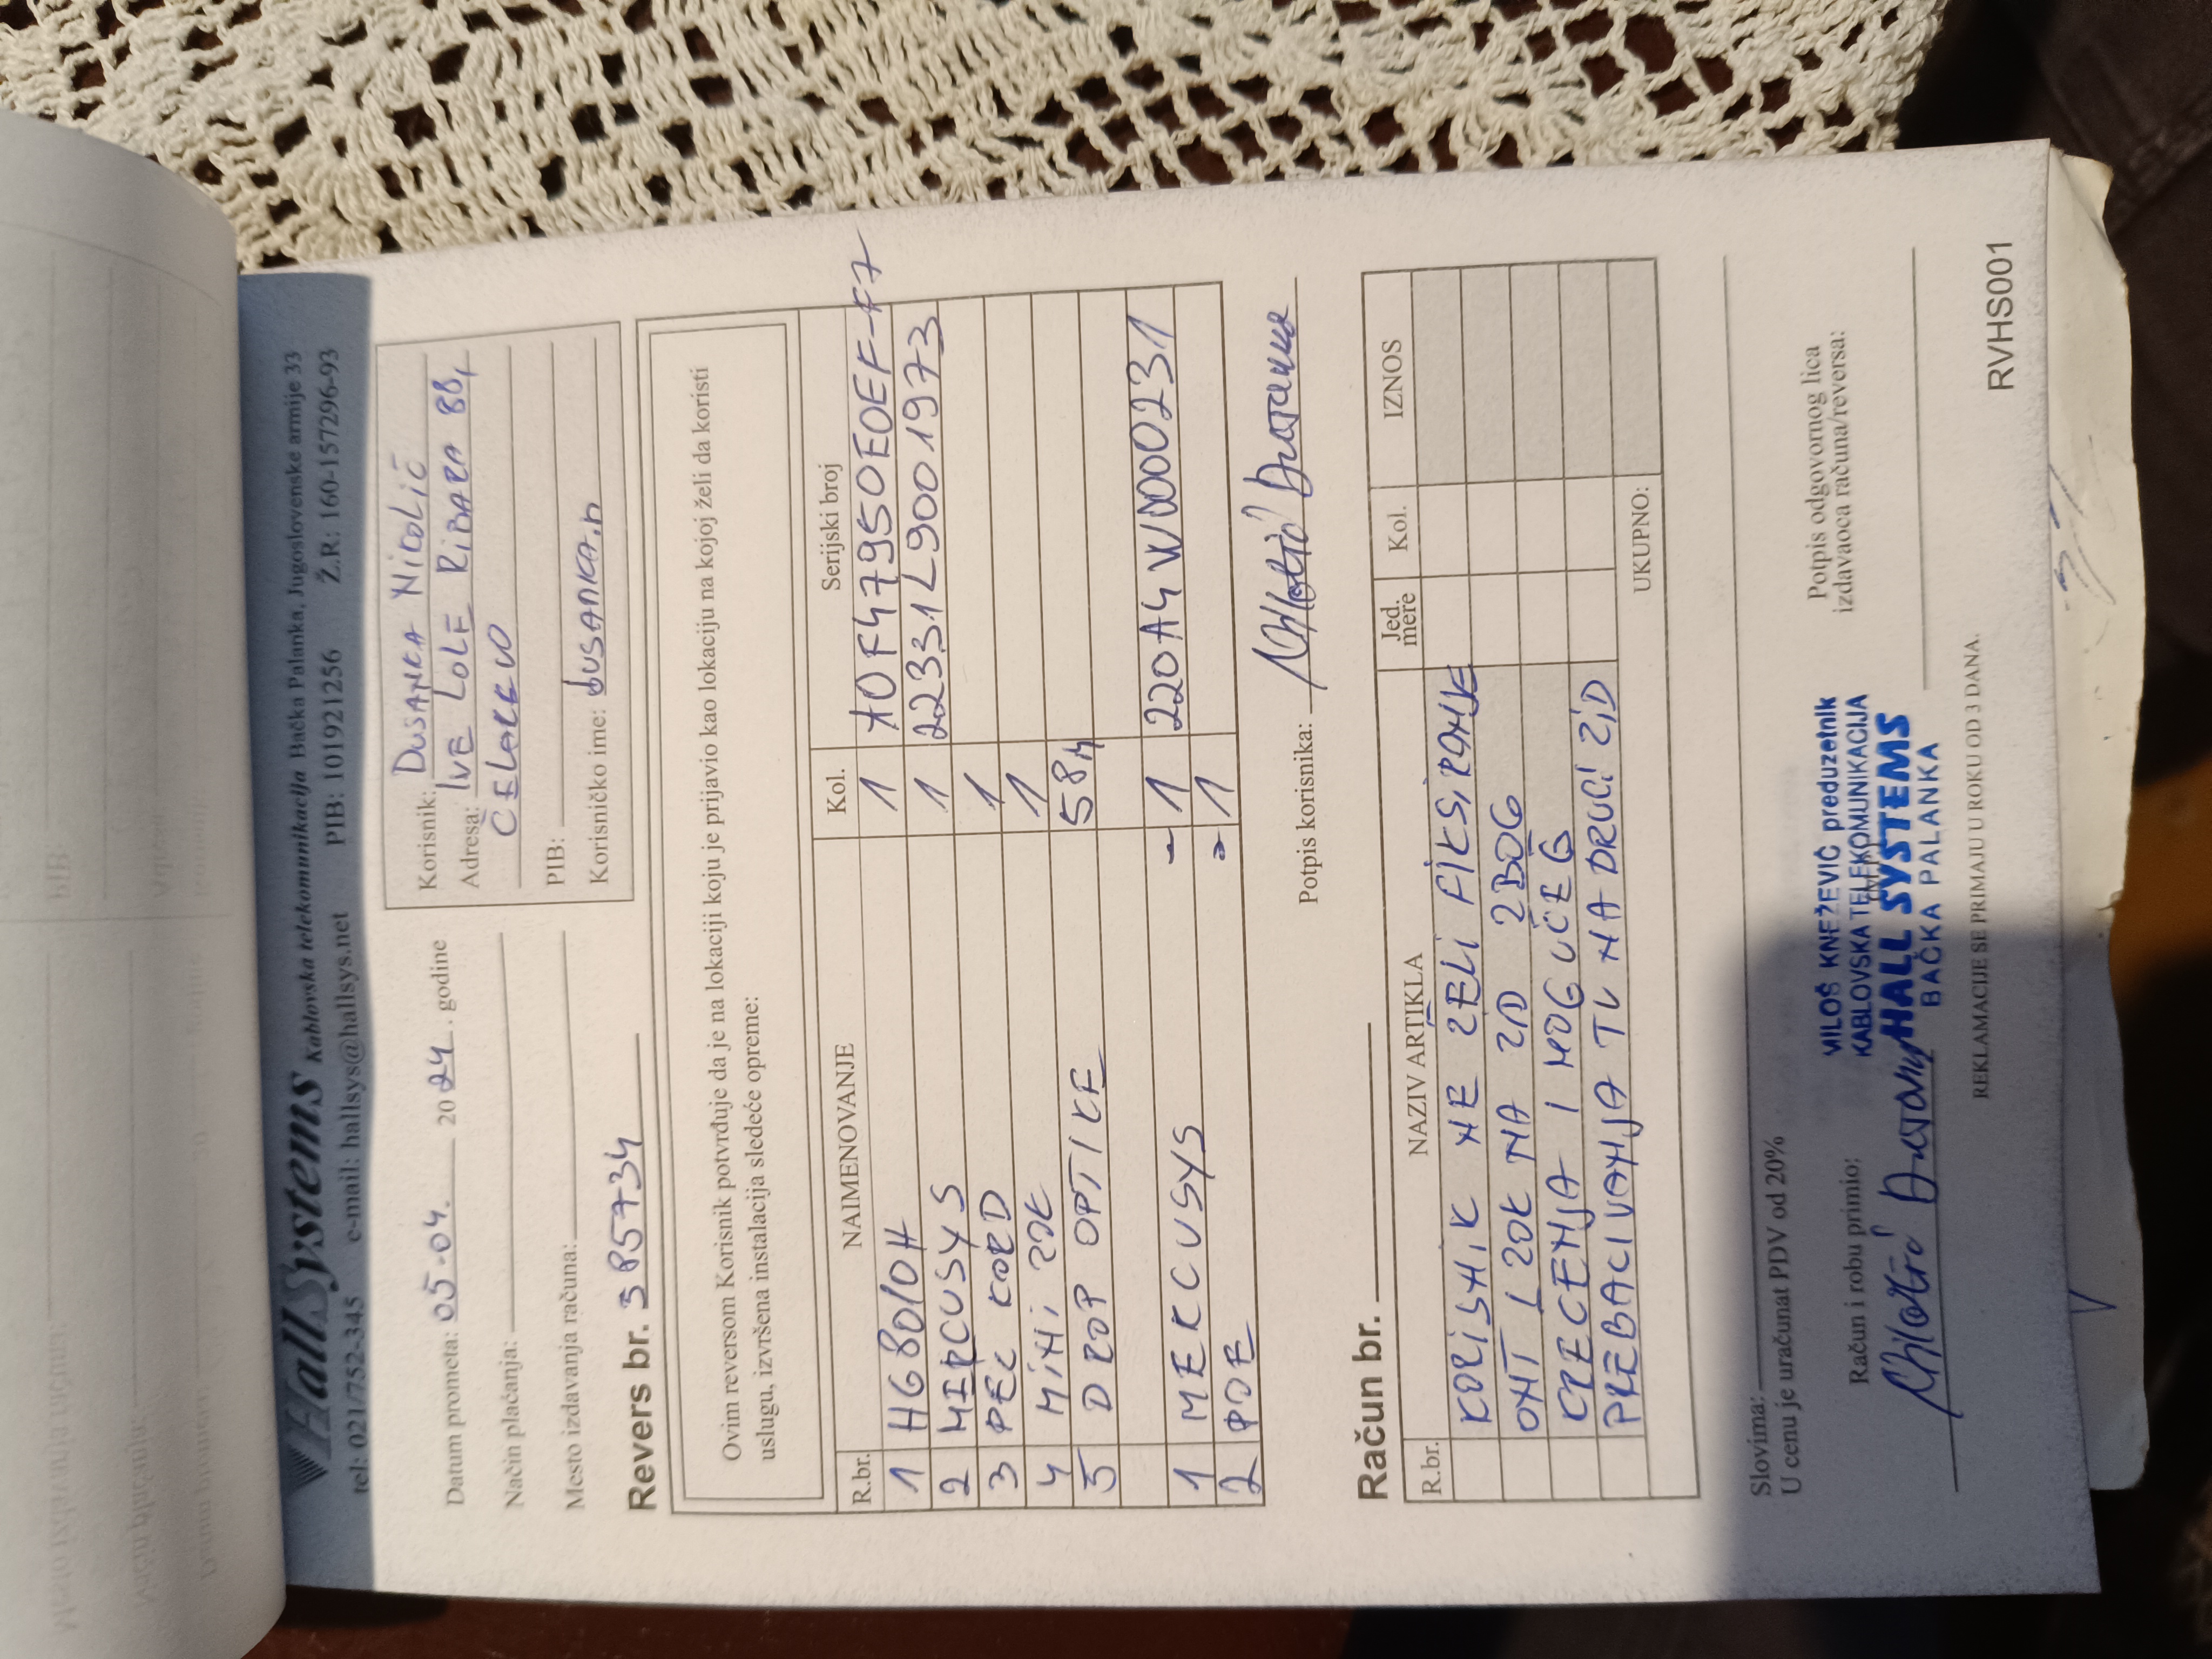 HallSystems Kablovska telekomunikacija Bačka Palanka, Jugoslovenske armije 33
tel: 021/7552-345 e-mail: hallsys@hallsys.net PIB: 101921256 Ž.R: 160-157296-93
Datum prometa: 05.04. 2024. godine
Način plaćanja:
Mesto izdavanja računa:
Korisnik: DUSANKA NICOLIĆ
Adresa: IVE LOLE RIBARA 88,
ČELAREVO
PIB:
Korisničko ime: dUSANKA.n
Revers br. 385734
Ovim reversom Korisnik potvrđuje da je na lokaciji koju je prijavio kao lokaciju na kojoj želi da koristi
uslugu, izvršena instalacija sledeće opreme:
R.br. NAIMENOVANJE Kol. Serijski broj
1 HG8010H 1 10F47950E0EF-F7
2 MERCUSYS 1 22331L9001973
3 PEČ KORD 1
4 MINI ZOK 1
5 DROP OPTIKE 58m
1 MERCUSYS - 1 220A4W0000231
2 POE - 1
Potpis korisnika:
Račun br.
R.br. NAZIV ARTIKLA Jed. mere Kol. IZNOS
KORISNIK NE ŽELI FIKSIRANJE
ONT I ZOK NA ZID ZBOG
KREČENJA I MOGUĆEG
PREBACIVANJA TV NA DRUGI ZID
UKUPNO:
Slovima:
U cenu je uračunat PDV od 20%
Račun i robu primio:
MILOŠ KNEŽEVIĆ preduzetnik
KABLOVSKA TELEKOMUNIKACIJA
HALL SYSTEMS
BAČKA PALANKA
Potpis odgovornog lica
izdavaoca računa/reversa:
REKLAMACIJE SE PRIMAJU U ROKU OD 3 DANA.
RVHS001